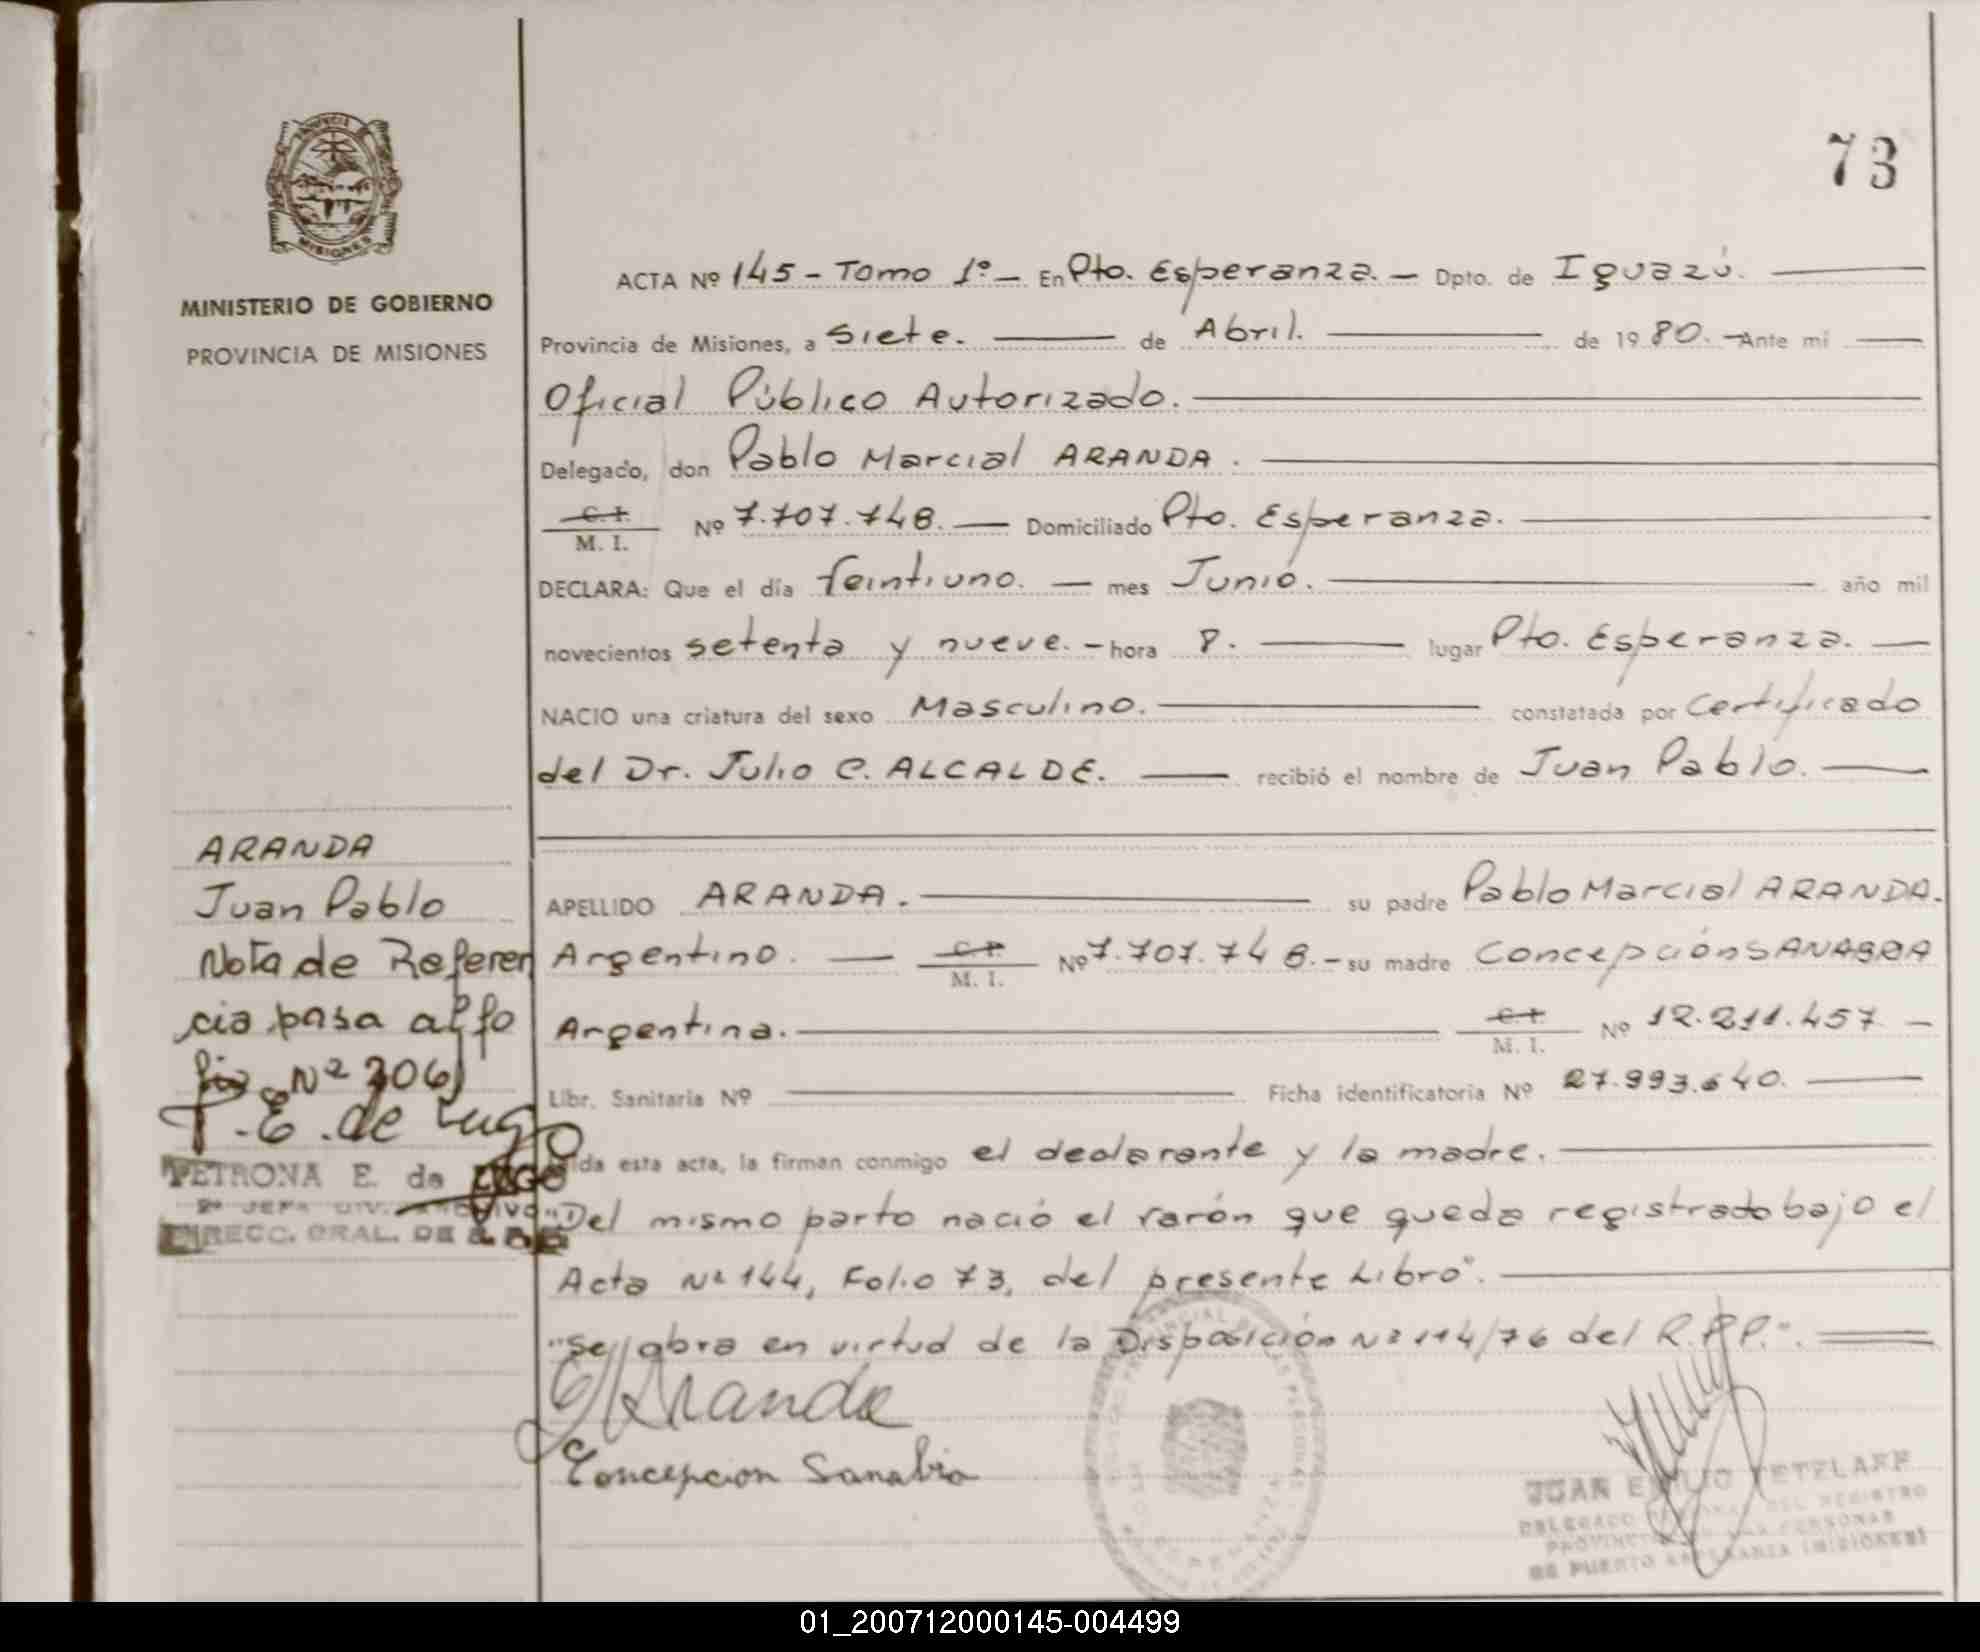 73
MINISTERIO DE GOBIERNO
PROVINCIA DE MISIONES
ACTA Nº 145 - Tomo 1º - En Pto. Esperanza. - Dpto. de Iguazú.
Provincia de Misiones, a siete. de Abril. de 1980. - Ante mi
Oficial Público Autorizado.
Delegado, don Pablo Marcial ARANDA.
C. I.
M. I. Nº 7.707.748. Domiciliado Pto. Esperanza.
DECLARA: Que el día Veintiuno. mes Junio. año mil
novecientos setenta y nueve. - hora 8. lugar Pto. Esperanza.
NACIO una criatura del sexo Masculino. constatada por Certificado
del Dr. Julio C. ALCALDE. recibió el nombre de Juan Pablo.
APELLIDO ARANDA. su padre Pablo Marcial ARANDA.
Argentino. C. I. M. I. Nº 7.707.748. - su madre Concepción SANABRIA
Argentina. C. I. M. I. Nº 12.211.457 -
Libr. Sanitaria Nº Ficha identificatoria Nº 27.993.640.
ida esta acta, la firman conmigo el declarante y la madre.
"Del mismo parto nació el varón que queda registrado bajo el
Acta Nº 144, Folio 73, del presente Libro".
"Se labra en virtud de la Disposición Nº 114/76 del R.P.P.".
Aranda
Concepcion Sanabria
ARANDA
Juan Pablo
Nota de Referen
cia pasa al fo
lio Nº 206
P. E. de Lugo
PETRONA E. de LUGO
2º JEFA DIV. ARCHIVO
DIRECC. GRAL. DE
JUAN EMILIO TETZLAFF
DELEGADO DEL REGISTRO
PROVINCIAL DE LAS PERSONAS
DE PUERTO ESPERANZA (MISIONES)
01_200712000145-004499